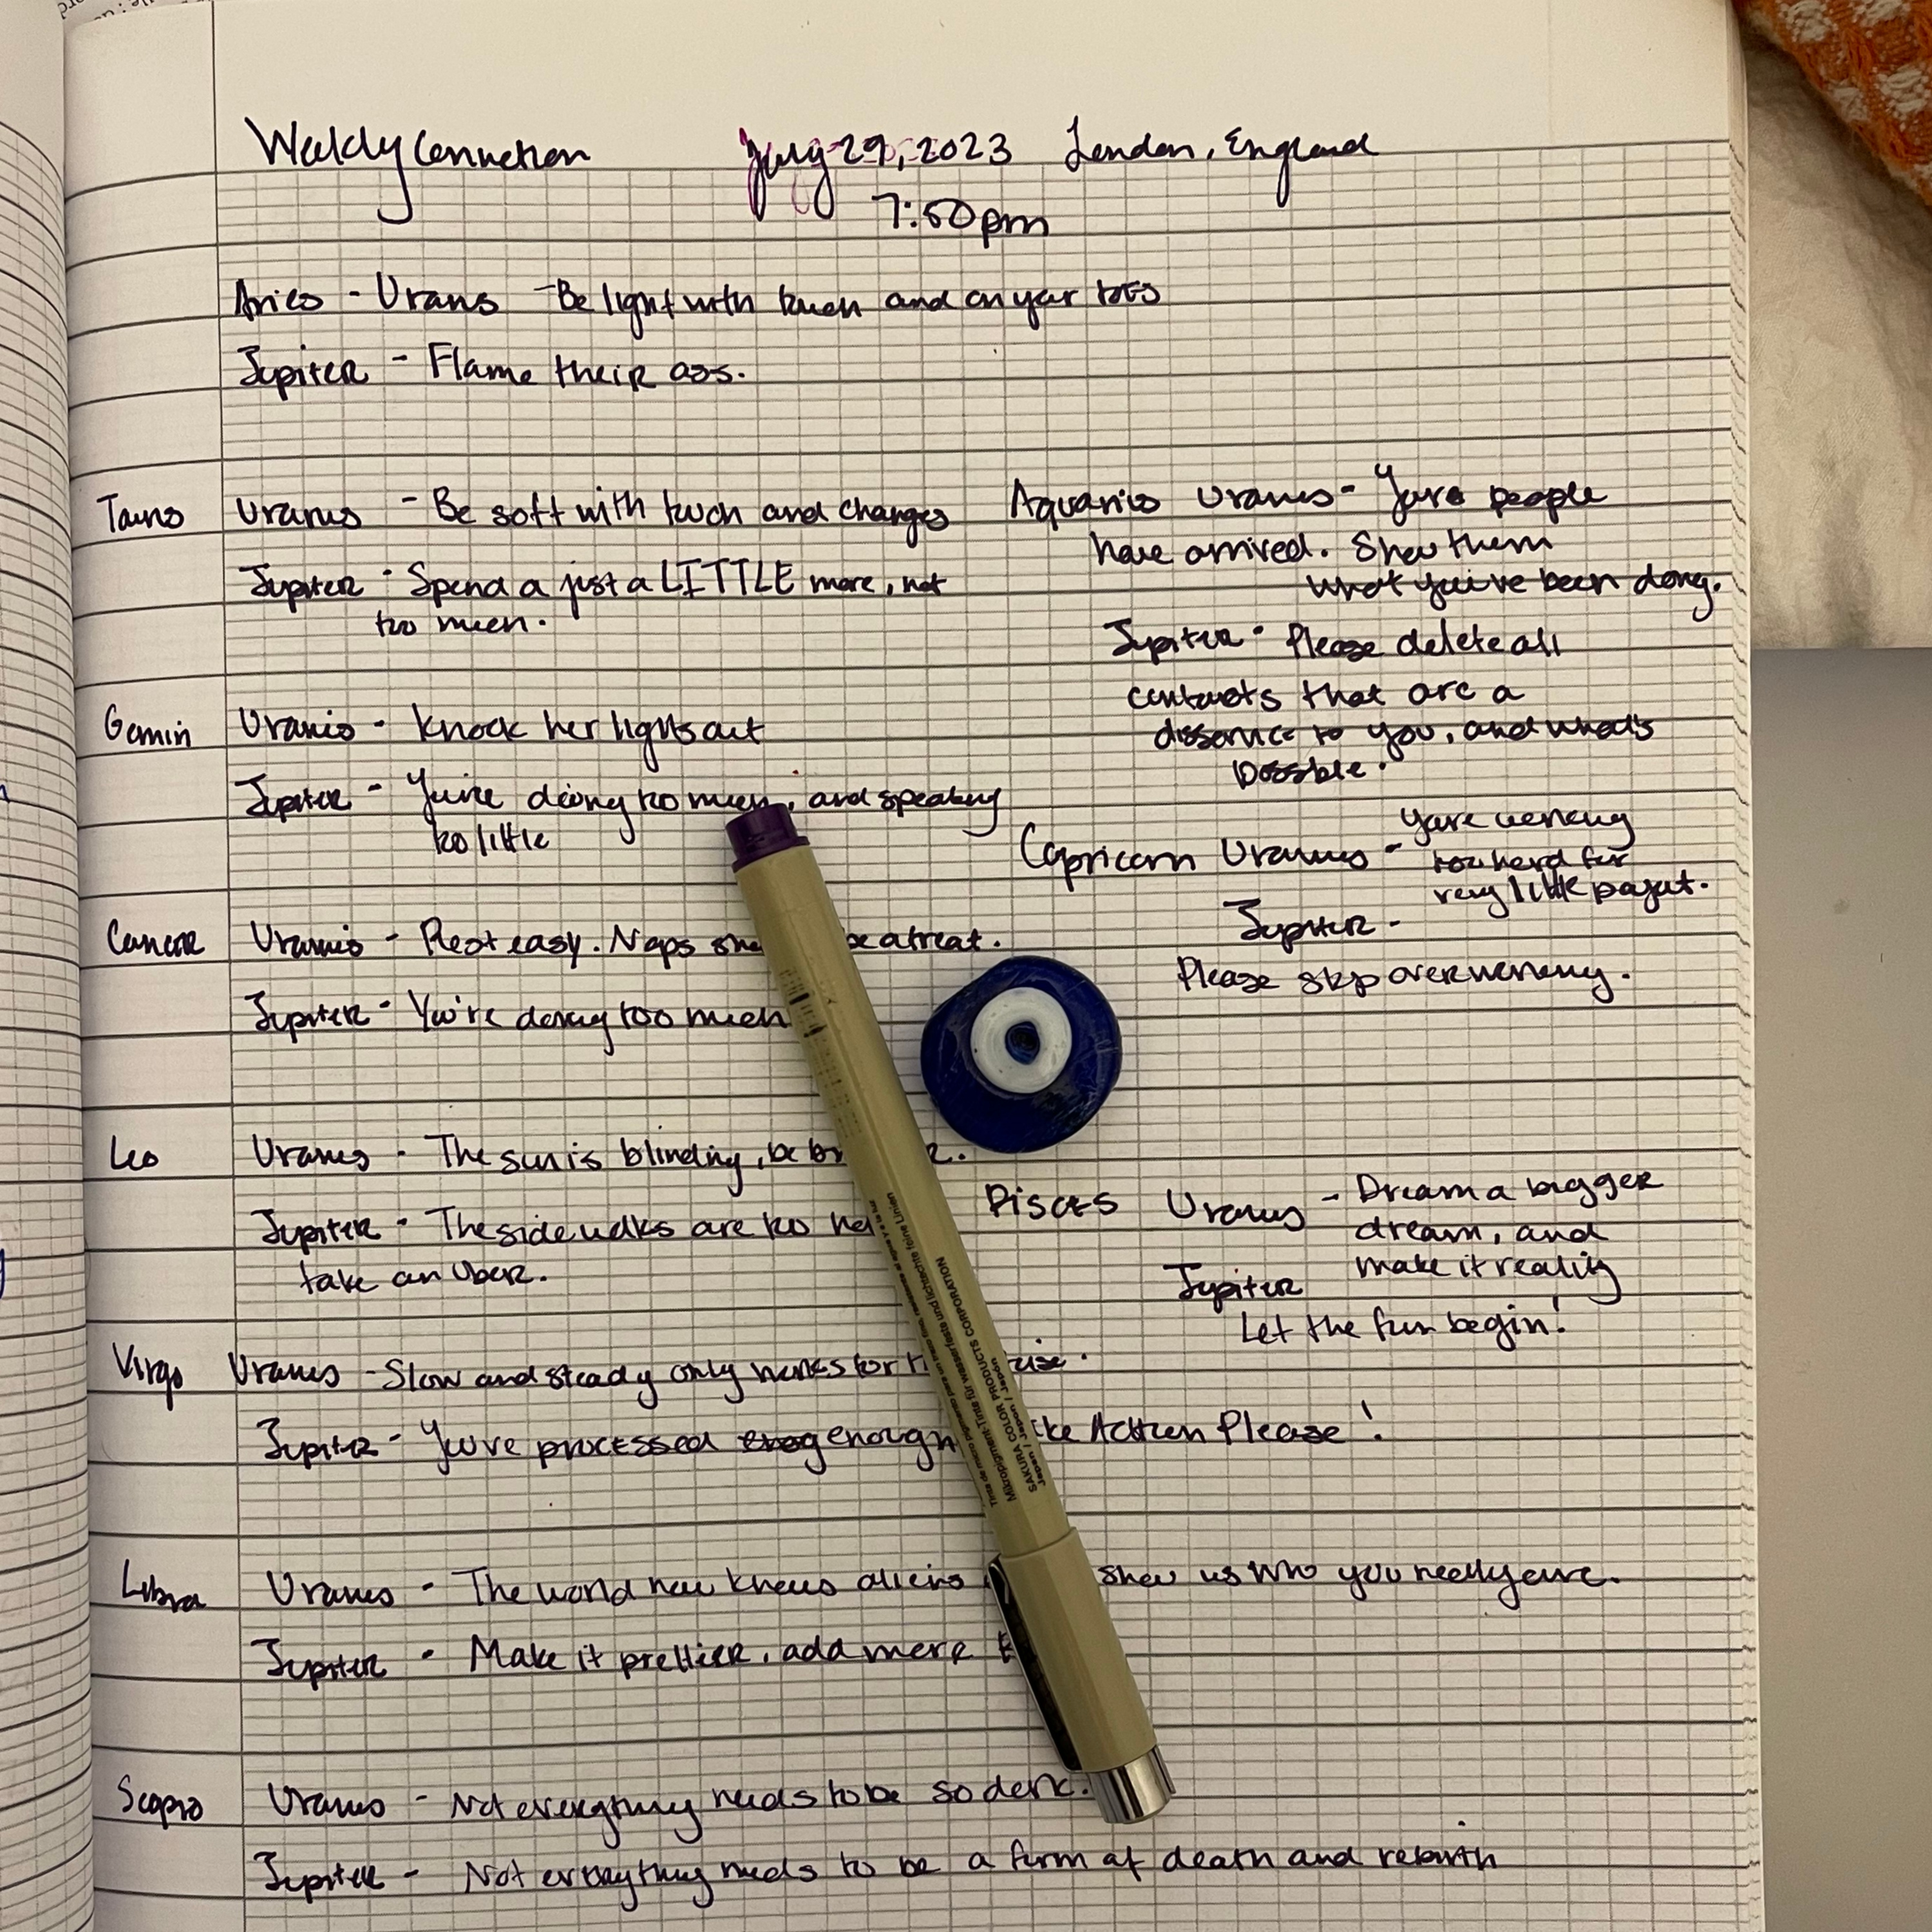 Weekly Connection July 29, 2023 London, England
7:50pm
Aries - Uranus - Be light with touch and on your toes
Jupiter - Flame their ass.
Taurus Uranus - Be soft with touch and changes
Jupiter - Spend a just a LITTLE more, not
too much.
Gemini Uranus - Knock her lights out
Jupiter - You're doing too much, and speaking
too little
Cancer Uranus - Rest easy. Naps be a treat.
Jupiter - You're doing too much
Leo Uranus - The sun is blinding, be
Jupiter - The sidewalks are too
take an Uber.
Virgo Uranus - Slow and steady only works for
Jupiter - You've processed enough Action Please!
Libra Uranus - The world now knows aliens show us who you really are.
Jupiter - Make it prettier, add more
Scorpio Uranus - Not everything needs to be so dark.
Jupiter - Not everything needs to be a form of death and rebirth
Aquarius Uranus - Your people
have arrived. Show them
what you've been doing.
Jupiter - Please delete all
contacts that are a
disservice to you, and what's
possible.
Capricorn Uranus - You're working
too hard for
very little payout.
Jupiter -
Please stop overworking.
Pisces Uranus - Dream a bigger
dream, and
make it reality
Jupiter
Let the fun begin!
SAKURA COLOR PRODUCTS CORPORATION
Japan / Japon / Japón